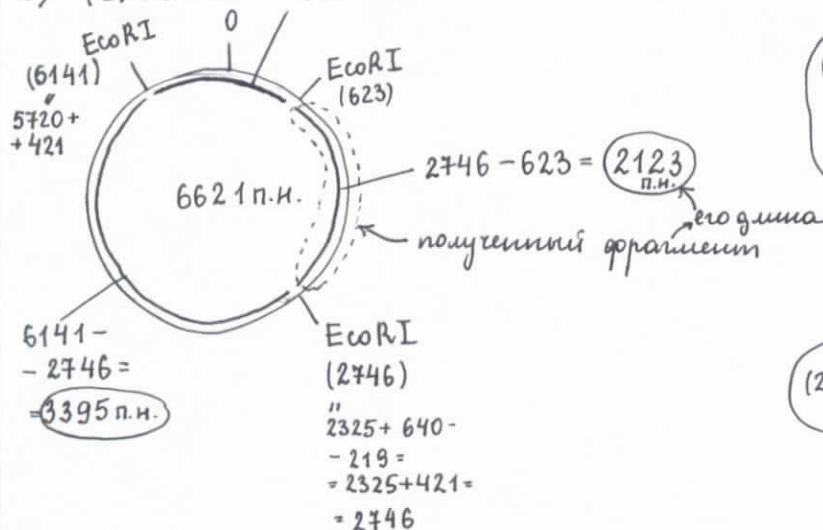 0
EcoRI
(6141)
"
5720+
+421
EcoRI
(623)
6621 п.н.
2746 – 623 = 2123
п.н.
его длина
полученный фрагмент
6141 –
– 2746 =
=3395 п.н.
EcoRI
(2746)
"
2325 + 640 –
– 219 =
= 2325+421=
= 2746
(2